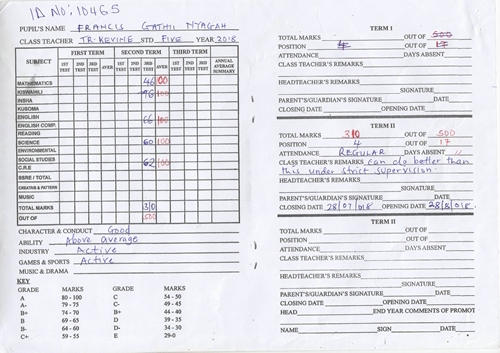 ID NO: 10465
PUPIL'S NAME FRANCIS GATHII NYAGAH
CLASS TEACHER TR. KEVINE STD FIVE YEAR 2018
SUBJECT FIRST TERM SECOND TERM THIRD TERM
1ST TEST 2ND TEST 3RD TEST AVER 1ST TEST 2ND TEST 3RD TEST AVER 1ST TEST 2ND TEST 3RD TEST AVER ANNUAL AVERAGE SUMMARY
MATHEMATICS 46 100
KISWAHILI 76 100
INSHA
KUSOMA
ENGLISH 66 100
ENGLISH COMP.
READING
SCIENCE 60 100
ENVIRONMENTAL
SOCIAL STUDIES 62 100
C.R.E
SSRE / TOTAL
CREATIVE & PATTERN
MUSIC
TOTAL MARKS 310
OUT OF 500
CHARACTER & CONDUCT Good
ABILITY Above average
INDUSTRY Active
GAMES & SPORTS Active
MUSIC & DRAMA
KEY
GRADE MARKS GRADE MARKS
A 80 - 100 C 54 - 50
A- 79 - 75 C- 49 - 45
B+ 74 - 70 B+ 44 - 40
B 69 - 65 D 39 - 35
B- 64 - 60 D- 34 - 30
C+ 59 - 55 E 29-0
TERM I
TOTAL MARKS OUT OF 500
POSITION 4 OUT OF 17
ATTENDANCE DAYS ABSENT
CLASS TEACHER'S REMARKS
HEADTEACHER'S REMARKS
SIGNATURE
PARENT'S/GUARDIAN'S SIGNATURE DATE
CLOSING DATE OPENING DATE
TERM II
TOTAL MARKS 310 OUT OF 500
POSITION 4 OUT OF 17
ATTENDANCE REGULAR DAYS ABSENT
CLASS TEACHER'S REMARKS can do better than
this under strict supervision.
HEADTEACHER'S REMARKS
SIGNATURE
PARENT'S/GUARDIAN'S SIGNATURE DATE
CLOSING DATE 28/07/018 OPENING DATE 28/8/018
TERM II
TOTAL MARKS OUT OF
POSITION OUT OF
ATTENDANCE DAYS ABSENT
CLASS TEACHER'S REMARKS
HEADTEACHER'S REMARKS
SIGNATURE
PARENT'S/GUARDIAN'S SIGNATURE DATE
CLOSING DATE OPENING DATE
HEAD END YEAR COMMENTS OF PROMOT
NAME SIGN DATE